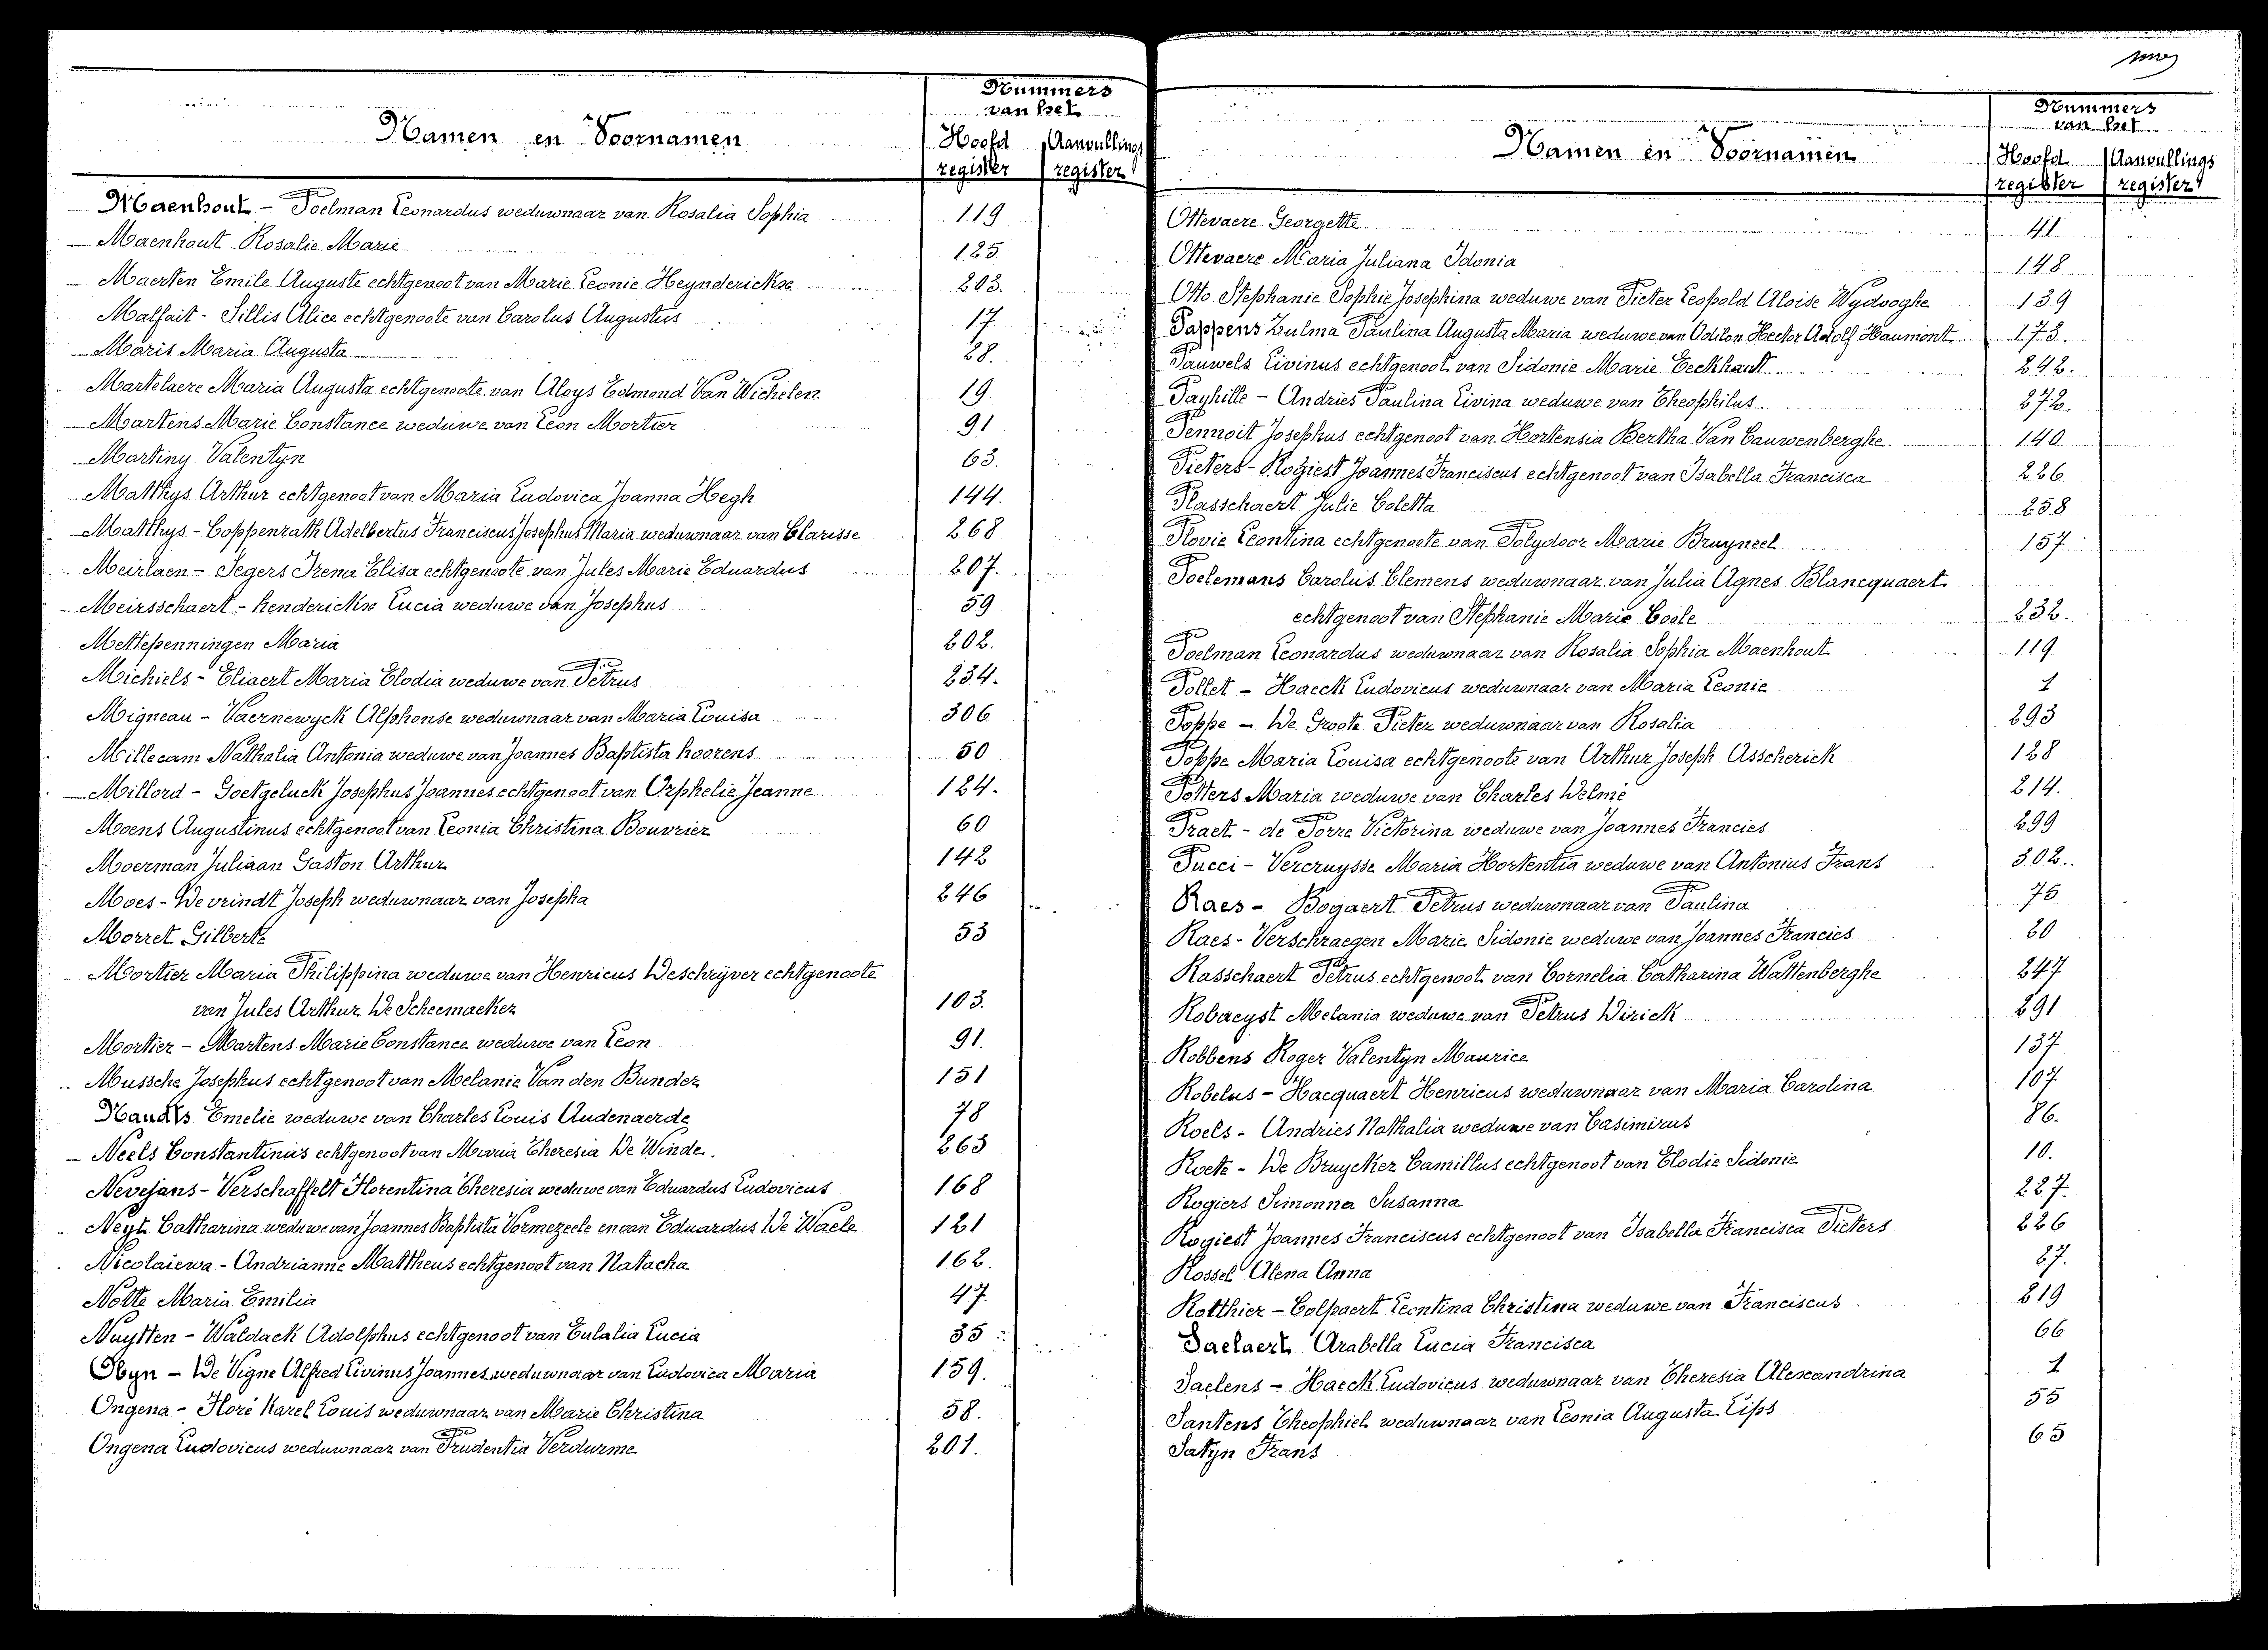 Nummers
van het
Namen en Voornamen
Hoofd register
Aanvullings register
Maenhout - Poelman Leonardus weduwnaar van Rosalia Sophia 119
Maenhout Rosalie Marie 125
Maerten Emile Auguste echtgenoot van Marie Leonie Heynderickx 203.
Malfait - Sillis Alice echtgenoote van Carolus Augustus 17
Maris Maria Augusta 28.
Martelaere Maria Augusta echtgenoote van Aloys Edmond Van Wichelen 19
Martens Marie Constance weduwe van Leon Mortier 91
Martiny Valentyn 63.
Matthys Arthur echtgenoot van Maria Ludovica Joanna Hegh 144.
Matthys - Coppenrath Adelbertus Franciscus Josephus Maria weduwnaar van Clarisse 268
Meirlaen - Segers Irena Elisa echtgenoote van Jules Marie Eduardus 207.
Meirsschaert - Kenderickx Lucia weduwe van Josephus 59
Mettepenningen Maria 202.
Michiels - Eliaert Maria Elodia weduwe van Petrus 234.
Migneau - Vaernewyck Alphonse weduwnaar van Maria Louisa 306
Millecam Nathalia Antonia weduwe van Joannes Baptista Koorens 50
Millord - Goetgeluck Josephus Joannes echtgenoot van Orphelie Jeanne 124.
Moens Augustinus echtgenoot van Leonia Christina Bouvrier 60
Moerman Juliaan Gaston Arthur 142
Moes - De vrindt Joseph weduwnaar van Josepha 246
Morret Gilberte 53
Mortier Maria Philippina weduwe van Henricus Deschrijver echtgenoote
van Jules Arthur De Scheemaeker 103.
Mortier - Martens Marie Constance weduwe van Leon 91.
Mussche Josephus echtgenoot van Melanie Van den Bunder 151
Naudts Emelie weduwe van Charles Louis Audenaerde 78
Neels Constantinus echtgenoot van Maria Theresia De Winde. 263
Nevejans - Verschaffelt Florentina Theresia weduwe van Eduardus Ludovicus 168
Neyt Catharina weduwe van Joannes Baptista Vormezeele en van Eduardus De Waele 121
Nicolaiewa - Andrianne Mattheus echtgenoot van Natacha 162.
Notte Maria Emilia 47.
Nuytten - Waldack Adolphus echtgenoot van Eulalia Lucia 35
Obyn - De Vigne Alfred Livinus Joannes weduwnaar van Ludovica Maria 159.
Ongena - Floré Karel Louis weduwnaar van Marie Christina 58.
Ongena Ludovicus weduwnaar van Prudentia Verdurme 201.
Nummers
van het
Namen en Voornamen
Hoofd register
Aanvullings register
Ottevaere Georgette 41
Ottevaere Maria Juliana Idonia 148
Otto Stephanie Sophie Josephina weduwe van Pieter Leopold Aloise Wydooghe 139
Pappens Zulma Paulina Augusta Maria weduwe van Odilon Hector Adolf Haumont 173.
Pauwels Livinus echtgenoot van Sidonie Marie Eeckhaut 242.
Payhille - Andries Paulina Livina weduwe van Theophilus 272.
Pennoit Josephus echtgenoot van Hortensia Bertha Van Cauwenberghe 140
Pieters - Rogiest Joannes Franciscus echtgenoot van Isabella Francisca 226
Plasschaert Julie Coletta 258
Plovie Leontina echtgenoote van Polydoor Marie Bruyneel 157
Poelemans Carolus Clemens weduwnaar van Julia Agnes Blancquaert
echtgenoot van Stephanie Marie Coole 232.
Poelman Leonardus weduwnaar van Rosalia Sophia Maenhout 119
Pollet - Haeck Ludovicus weduwnaar van Maria Leonie 1
Poppe - De Groote Pieter weduwnaar van Rosalia 293
Poppe Maria Louisa echtgenoote van Arthur Joseph Asscherick 128
Potters Maria weduwe van Charles Delmé 214.
Praet - de Porre Victorina weduwe van Joannes Francies 299
Pucci - Vercruysse Maria Hortentia weduwe van Antonius Frans 302.
Raes - Bogaert Petrus weduwnaar van Paulina 75
Raes - Verschraegen Marie Sidonie weduwe van Joannes Francies 20
Rasschaert Petrus echtgenoot van Cornelia Catharina Wattenberghe 247
Robaeyst Melania weduwe van Petrus Dirick 291
Robbens Roger Valentyn Maurice 137
Robelus - Hacquaert Henricus weduwnaar van Maria Carolina 107
Roels - Andries Nathalia weduwe van Casimirus 86.
Roete - De Bruycker Camillus echtgenoot van Elodie Sidonie 10.
Rogiers Simonna Susanna 227.
Rogiest Joannes Franciscus echtgenoot van Isabella Francisca Pieters 226
Rossel Alena Anna 27.
Rotthier - Colpaert Leontina Christina weduwe van Franciscus. 219
Saelaert Arabella Lucia Francisca 66
Saelens - Haeck Ludovicus weduwnaar van Theresia Alexandrina 1
Santens Theophiel weduwnaar van Leonia Augusta Lips 55
Satyn Frans 65